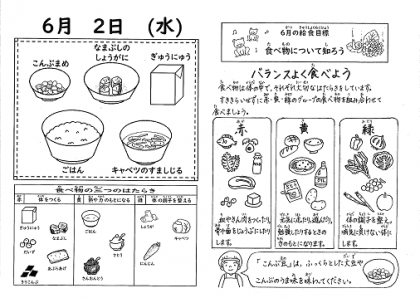 6月 2日 (水)
こんぶまめ
なまぶしの
しょうがに
ぎゅうにゅう
ごはん
キャベツのすましじる
食べ物の三つのはたらき
赤 体をつくる
黄 熱や力のもとになる
緑 体の調子を整える
ぎゅうにゅう
なまぶし
だいず
あぶらあげ
きりこんぶ
ごはん
さとう
しょうが
にんじん
キャベツ
6月の給食目標
食べ物について知ろう
バランスよく食べよう
食べ物は体の中で、それぞれ大切なはたらきをしています。
すききらいせずに赤・黄・緑のグループの食べ物を組み合わせて
食べましょう。
赤
黄
緑
「こんぶ豆」は、ふっくらとした大豆や
こんぶのうま味を味わってください。